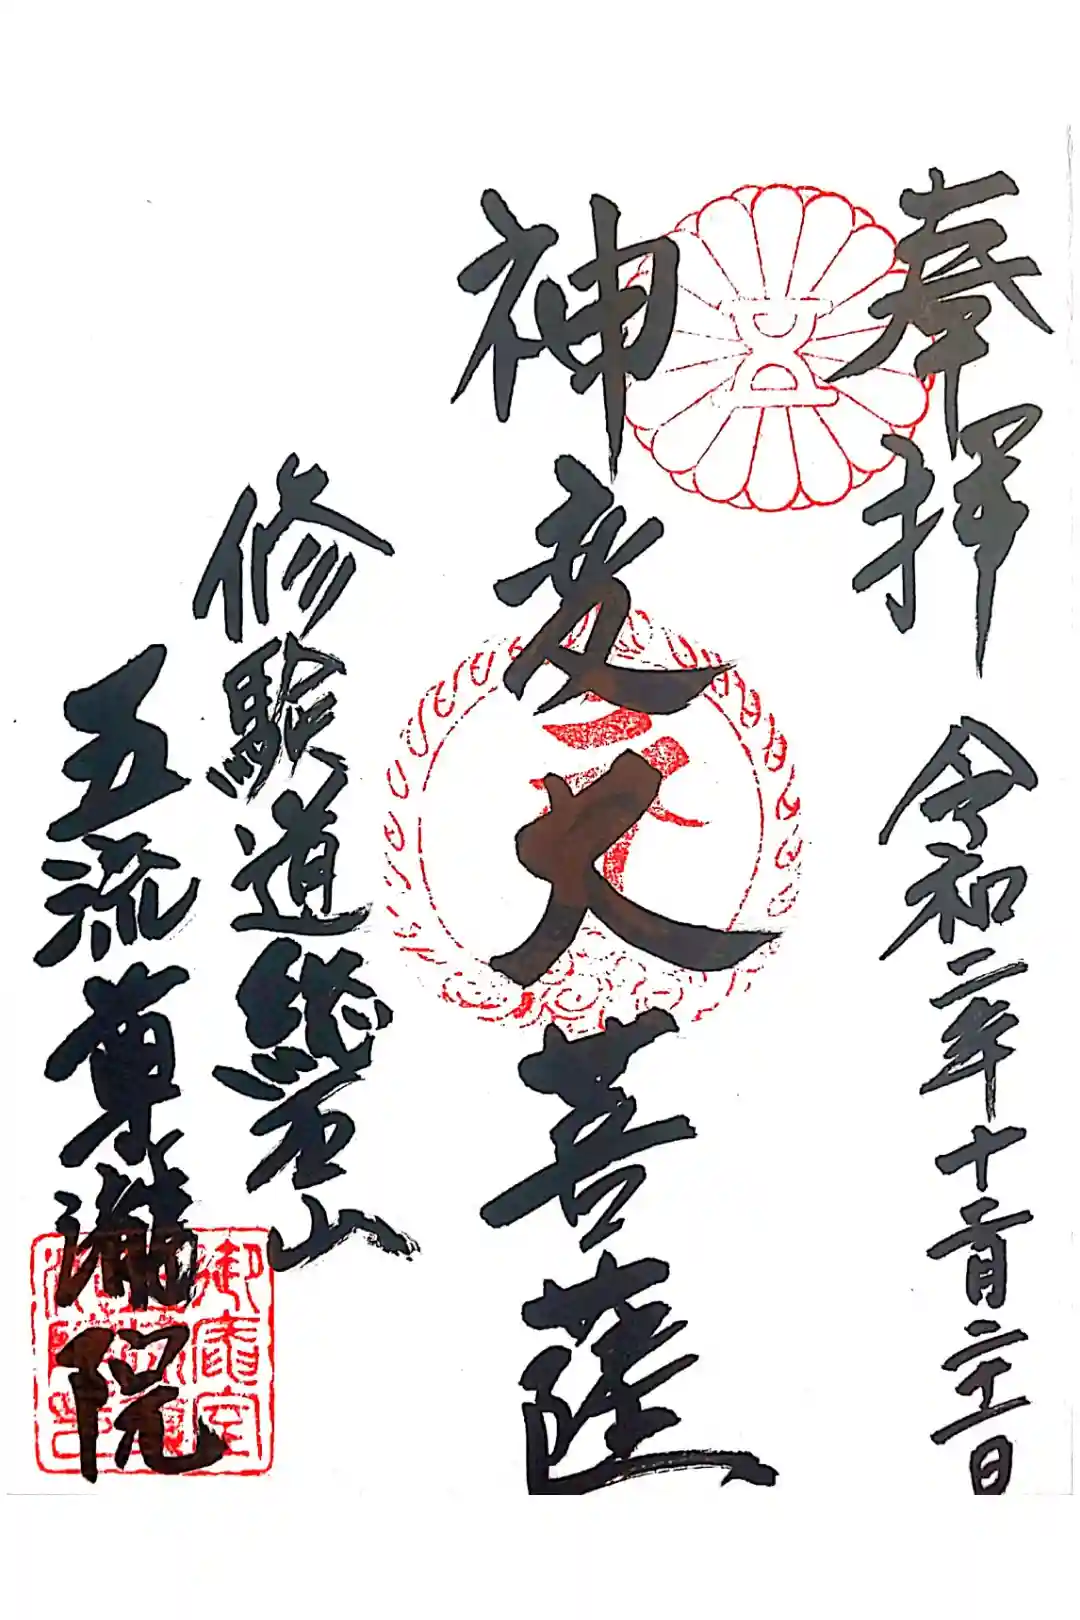 奉拝
令和二年十一月二十一日
神変大菩薩
修験道総本山
五流尊瀧院